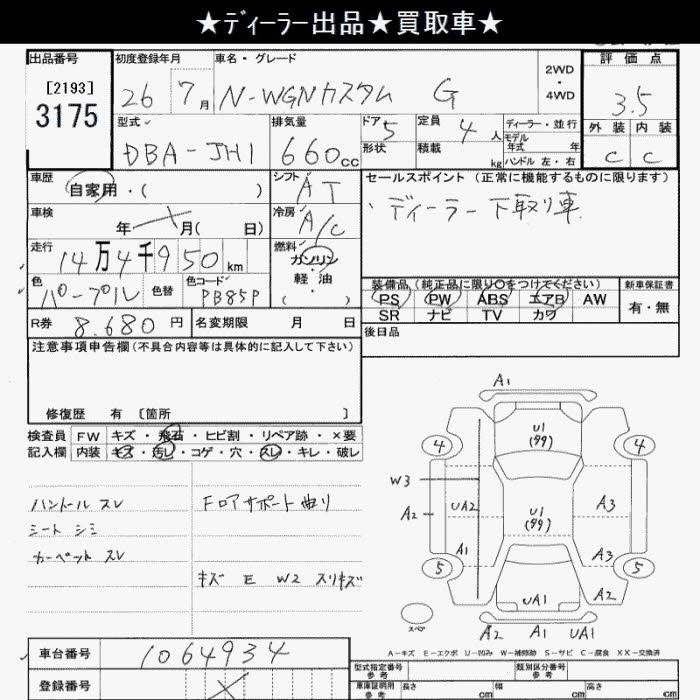 ★ディーラー出品★買取車★
出品番号 初度登録年月 車名・グレード 2WD・4WD 評価点
[2193] 3175 26 7月 N-WGNカスタム G 3.5
型式 排気量 ドア 5 定員 4人 ディーラー・並行 外装 内装
DBA-JH1 660cc 形状 積載 kg モデル年式 年 C C
ハンドル 左・右
車歴 自家用・( ) シフト AT セールスポイント (正常に機能するものに限ります)
車検 年 月( 日) 冷房 A/C ・ディーラー下取り車
走行 14万4千950km 燃料 ガソリン・軽油・( )
色 パープル 色替 色コード PB85P 装備品 (純正品に限り○をつけてください) 新車保証書
PS PW ABS エアB AW 有・無
SR ナビ TV カワ
R券 8.680円 名変期限 月 日 後日品
注意事項申告欄 (不具合内容等は具体的に記入して下さい)
修復歴 有 [箇所 ]
検査員 FW キズ・飛石・ヒビ割・リペア跡・×要
記入欄 内装 キズ・汚レ・コゲ・穴・スレ・キレ・破レ
ハンドル スレ フロアサポート曲り
シート シミ
カーペット スレ
キズ E W2 スリキズ
A1
U1
(多々)
4 4
W3
A2 UA2 U1 A3
(多々)
A1 A3
5 5
UA1 A2
スペア A2 A1 UA1
A-キズ E-エクボ U-凹み W-補修跡 S-サビ C-腐食 XX-交換済
車台番号 1064934
登録番号
型式指定番号 参考 類別区分番号 参考
車庫証明用 参考 長さ cm 幅 cm 高さ cm